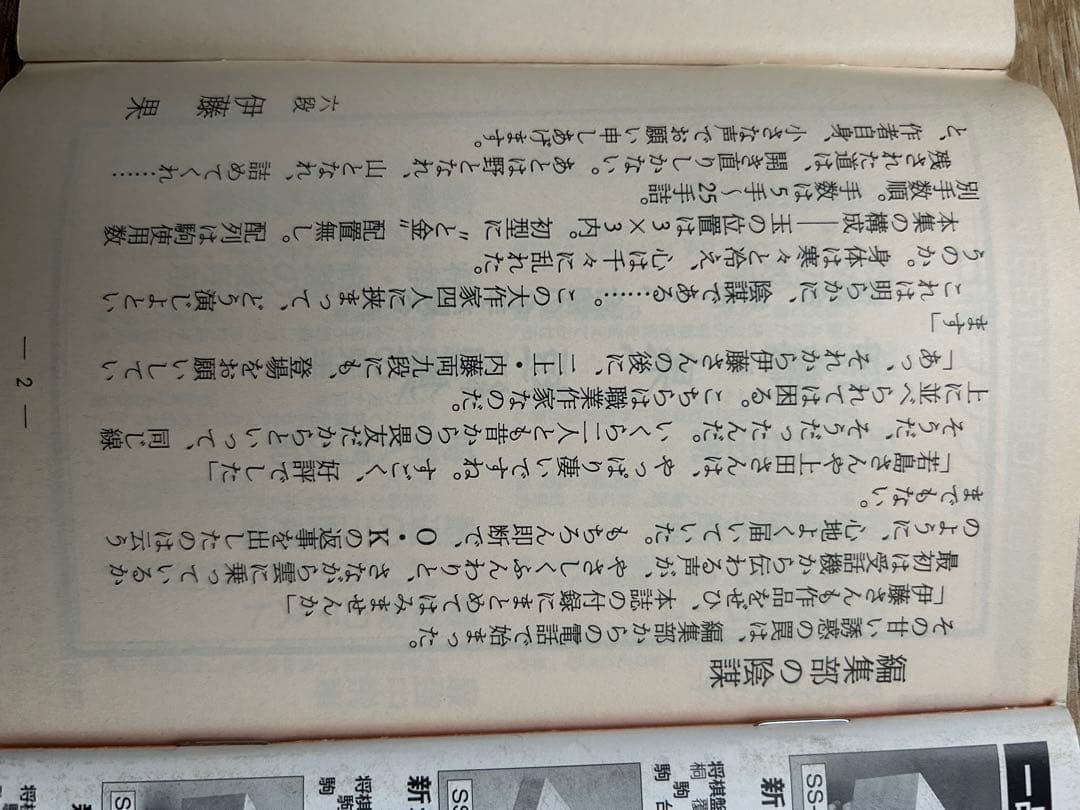 編集部の陰謀
その甘い誘惑の罠は、編集部からの電話で始まった。
「伊藤さんも作品をぜひ、本誌の付録にまとめてはみませんか」
最初は受話機から伝わる声が、やさしくふんわりと、さながら雲に乗っているか
のように、心地よく届いていた。もちろん即断で、O・Kの返事を出したのは云う
までもない。
「若島さんや上田さんは、やっぱり凄いですね。すごく、好評でした」
そうだ、そうだったんだ。いくら二人とも昔からの畏友だからといって、同じ線
上に並べられては困る。こちらは職業作家なのだ。
「あっ、それから伊藤さんの後に、二上・内藤両九段にも、登場をお願いしてい
ます」
これは明らかに、陰謀である……。この大作家四人に挟まって、どう演じよとい
うのか。身体は寒々と冷え、心は千々に乱れた。
本集の構成――玉の位置は3×3内。初型に〝と金〟配置無し。配列は駒使用数
別手数順。手数は5手〜25手詰。
残された道は、開き直りしかない。あとは野となれ、山となれ、詰めてくれ……
と、作者自身、小さな声でお願い申しあげます。
六段 伊藤 果
— 2 —
将棋
新
SS
将棋盤
桐
駒
駒台
新
SS
将棋盤
駒
駒
新
SS